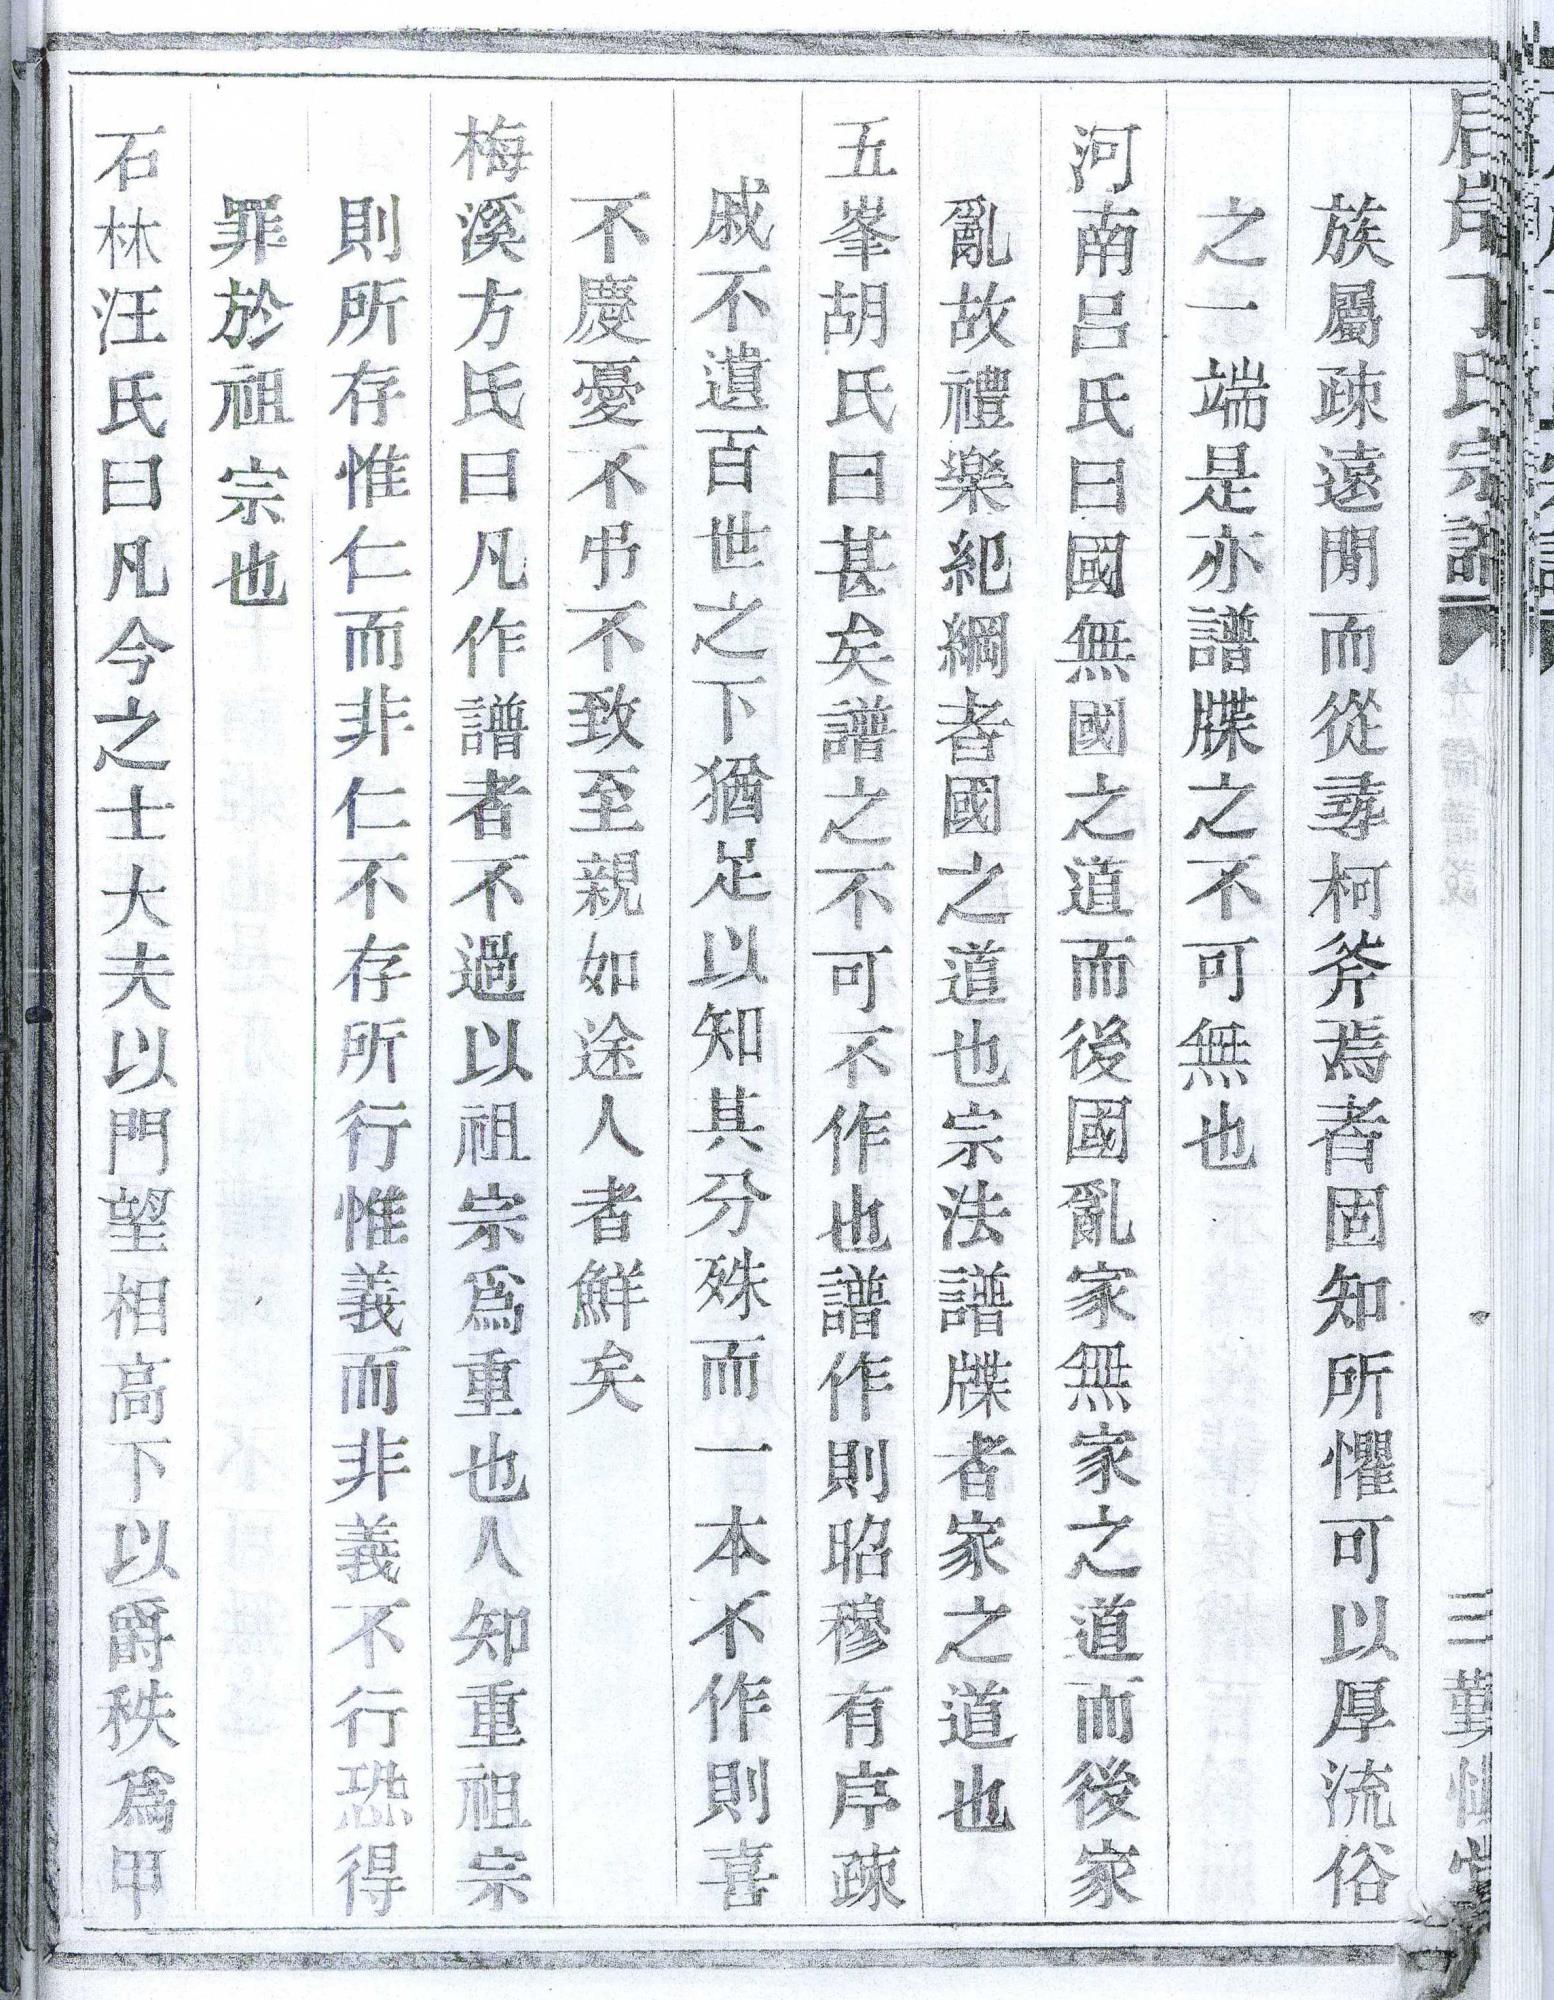 丁氏宗譜
先儒譜說
三 勤慎堂
族屬疎遠閒而從尋柯斧焉者固知所懼可以厚流俗
之一端是亦譜牒之不可無也
河南呂氏曰國無國之道而後國亂家無家之道而後家
亂故禮樂紀綱者國之道也宗法譜牒者家之道也
五峯胡氏曰甚矣譜之不可不作也譜作則昭穆有序疎
戚不遺百世之下猶足以知其分殊而一本不作則喜
不慶憂不弔不致至親如途人者鮮矣
梅溪方氏曰凡作譜者不過以祖宗爲重也人知重祖宗
則所存惟仁而非仁不存所行惟義而非義不行恐得
罪於祖宗也
石林汪氏曰凡今之士大夫以門望相高下以爵秩爲甲